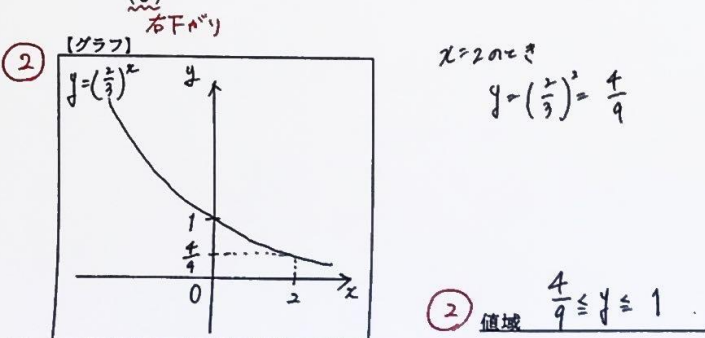 右下がり
②
【グラフ】
y=(2/3)^x
y
1
4/9
0
2
x
x=2のとき
y=(2/3)^2=4/9
② 値域 4/9≦y≦1